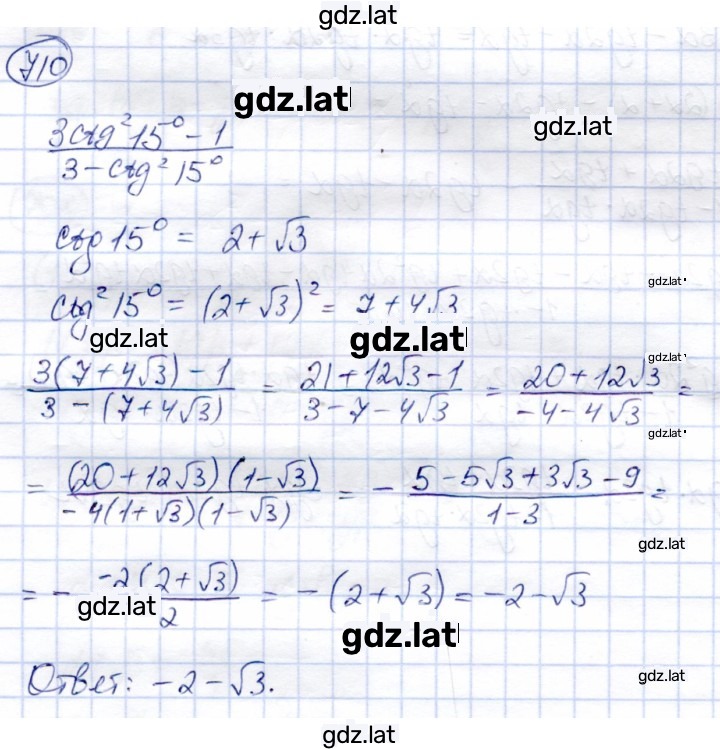 gdz.lat
710
gdz.lat
gdz.lat
(3ctg²15° - 1)/(3 - ctg²15°)
ctg 15° = 2 + √3
gdz.lat
ctg²15° = (2 + √3)² = 7 + 4√3
gdz.lat
gdz.lat
gdz.lat
(3(7 + 4√3) - 1)/(3 - (7 + 4√3)) = (21 + 12√3 - 1)/(3 - 7 - 4√3) = (20 + 12√3)/(-4 - 4√3) =
gdz.lat
= ((20 + 12√3)(1 - √3))/(-4(1 + √3)(1 - √3)) = - (5 - 5√3 + 3√3 - 9)/(1 - 3) =
gdz.lat
= - (-2(2 + √3))/2 = -(2 + √3) = -2 - √3
gdz.lat
gdz.lat
Ответ: -2 - √3.
gdz.lat
gdz.lat